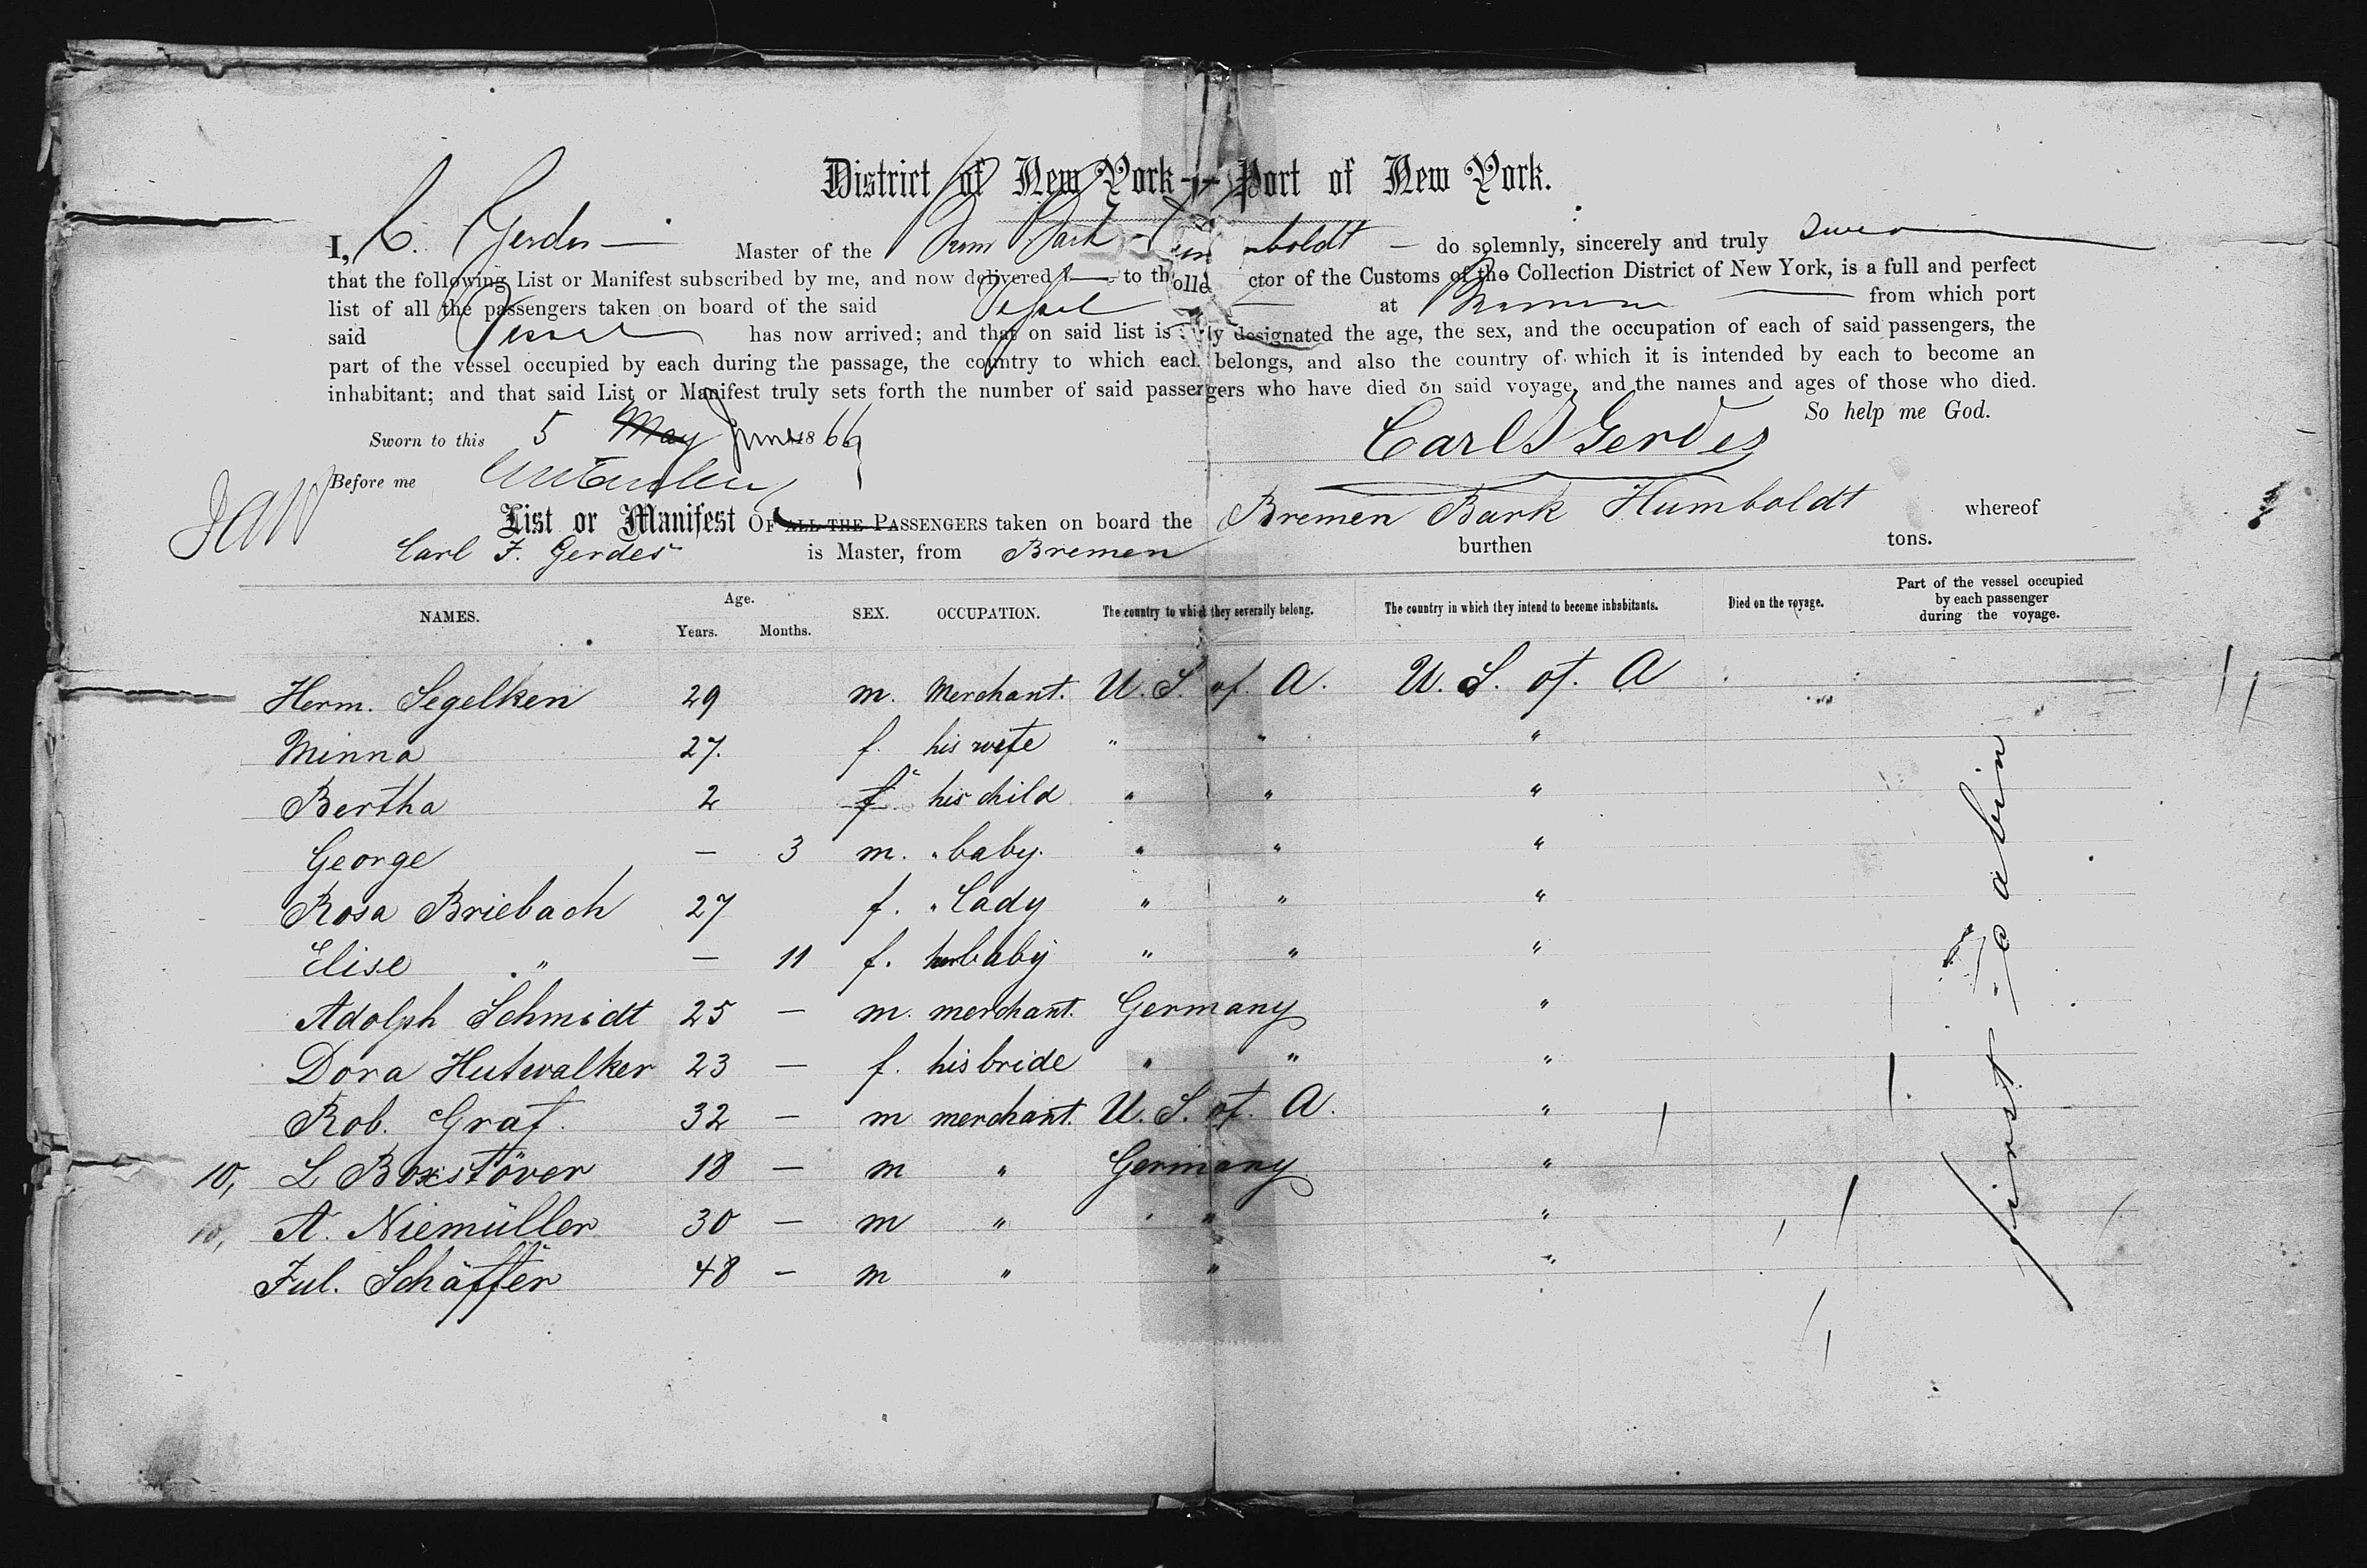 District of New York — Port of New York.
I, C. Gerdes — Master of the Brem Bark Humboldt — do solemnly, sincerely and truly swear
that the following List or Manifest subscribed by me, and now delivered to the Collector of the Customs of the Collection District of New York, is a full and perfect
list of all the passengers taken on board of the said Vessel at Bremen from which port
said Vessel has now arrived; and that on said list is truly designated the age, the sex, and the occupation of each of said passengers, the
part of the vessel occupied by each during the passage, the country to which each belongs, and also the country of which it is intended by each to become an
inhabitant; and that said List or Manifest truly sets forth the number of said passengers who have died on said voyage, and the names and ages of those who died.
So help me God.
Sworn to this 5 May June 1866 Carl F Gerdes
Before me
List or Manifest OF ALL THE PASSENGERS taken on board the Bremen Bark Humboldt whereof
Carl F. Gerdes is Master, from Bremen burthen tons.
NAMES. Age. Years. Months. SEX. OCCUPATION. The country to which they severally belong. The country in which they intend to become inhabitants. Died on the voyage. Part of the vessel occupied by each passenger during the voyage.
Herm. Segelken 29 m. Merchant. U. S. of. A. U. S. of. A
Minna 27. f. his wife " " "
Bertha 2 f. his child " " "
George — 3 m. " baby. " " "
Rosa Briebach 27 f. " Lady " " "
Elise " — 11 f. her baby " " "
Adolph Schmidt 25 — m. merchant. Germany "
Dora Hutwalker 23 — f. his bride " " "
Rob. Graf. 32 — m merchant. U. S. of. A. "
10, L Boxstöver 18 — m " Germany "
10, A. Niemüller 30 — m " " " "
Jul. Schäffer 48 — m " " "
first cabin